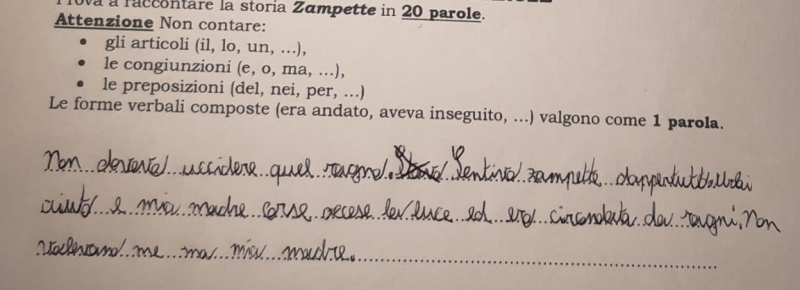 Prova a raccontare la storia Zampette in 20 parole.
Attenzione Non contare:
• gli articoli (il, lo, un, ...),
• le congiunzioni (e, o, ma, ...),
• le preposizioni (del, nei, per, ...)
Le forme verbali composte (era andato, aveva inseguito, ...) valgono come 1 parola.
Non dovevo uccidere quel ragno. Sentivo zampette dappertutto. Urlai
aiuto e mia madre corse accese la luce ed era circondata da ragni. Non
volevano me ma mia madre.